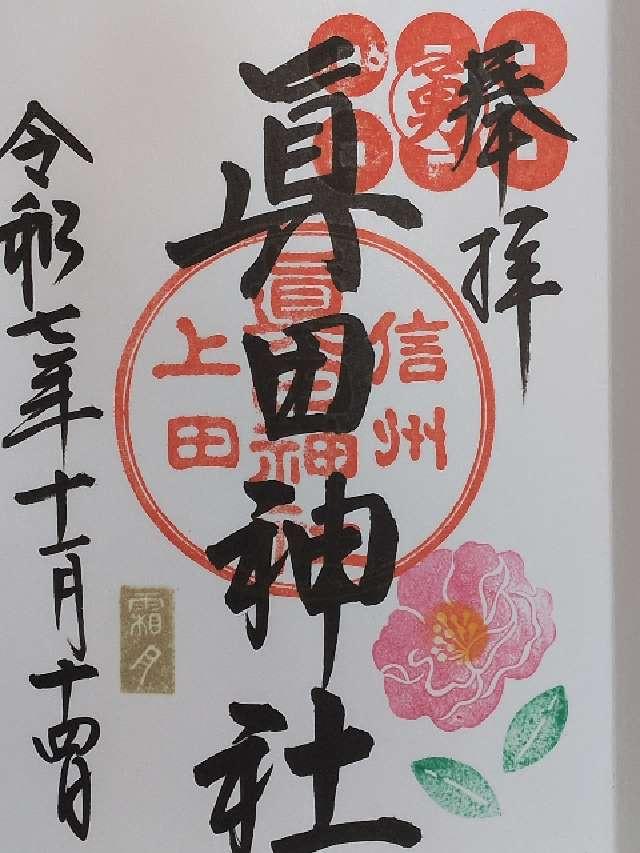 奉拝
勇
眞田神社
信州
眞田神社
上田
霜月
令和七年十一月十四日